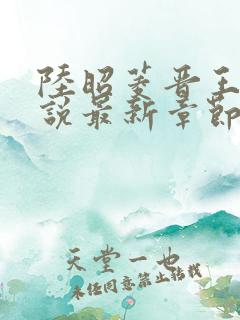 陸昭菱晋王
說最新章節
天堂一也
未经同意禁止转载